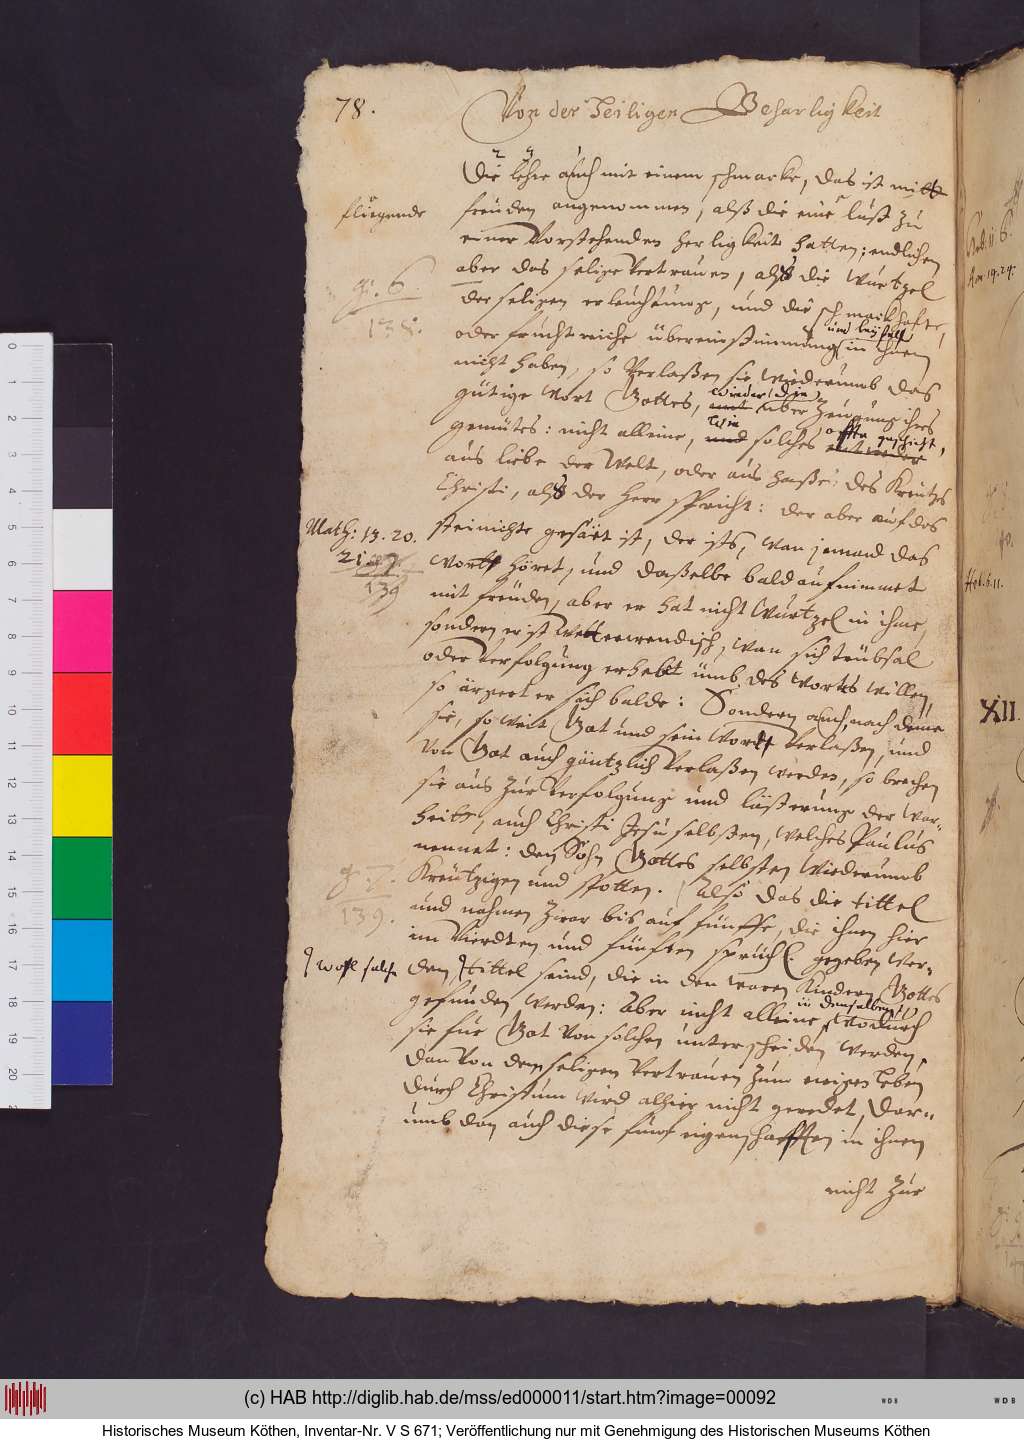 78.
Von der Heiligen Beharligkeit
Die lehre auch mit einem schmacke, das ist mitt
fliegende
freüden angenommen, alß die eine lust zu
einer Vorstehenden herligkeit hatten; endlichen
aber das selige Vertrauen, alß die Wurtzel
der seligen erleuchtung, und die schmackhafte,
g. 6.
138.
oder fruchtreiche übereinstimmung in ihnen
und beÿfall
nicht haben, so Verlaßen sie wiederumb das
gütige Wort Gottes, wieder die über Zeugung ihres
gemütes: nicht alleine, wie solches offte geschicht,
aus liebe der Welt, oder aus haße des Kreutzes
Christi, alß der Herr spricht: der aber auf das
Math: 13. 20.
21.
139
steinichte gesäet ist, der ists, wan jemand das
Wort höret, und daßelbe bald aufnimmet
mit freüden, aber er hat nicht Wurtzel in ihme,
sondern er ist Wetterwendisch, wan sich trübsal
oder Verfolgung erhebt ümb des Wortes willen,
so ärgert er sich balde: Sondern auch, nach deme
sie, so weit Gott und sein Wort Verlaßen, und
Von Gott auch gäntzlich Verlaßen werden, so brechen
sie aus zur Verfolgung und lästerung der War-
heitt, auch Christi Jesu selbsten, welches Paulus
nennet: den Sohn Gottes selbsten wiederumb
g. 7.
139.
Kreützigen und spotten. Also das die tittel
und nahmen zwar bis auf fünffe, die ihnen hier
im Vierdten und fünften spruch gegeben wer-
wohl solche
den, tittel seind, die in den waren Kindern Gottes
gefunden werden: Aber nicht alleine, wodurch
in denselben
sie für Gott Von solchen unterscheiden werden,
dan Von dem seligen Vertrauen zum ewigen leben
durch Christum wird alhier nicht geredet, dar-
umb dan auch diese fünf eigenschafften in ihnen
nicht zur
XII.
(c) HAB http://diglib.hab.de/mss/ed000011/start.htm?image=00092
Historisches Museum Köthen, Inventar-Nr. V S 671; Veröffentlichung nur mit Genehmigung des Historischen Museums Köthen